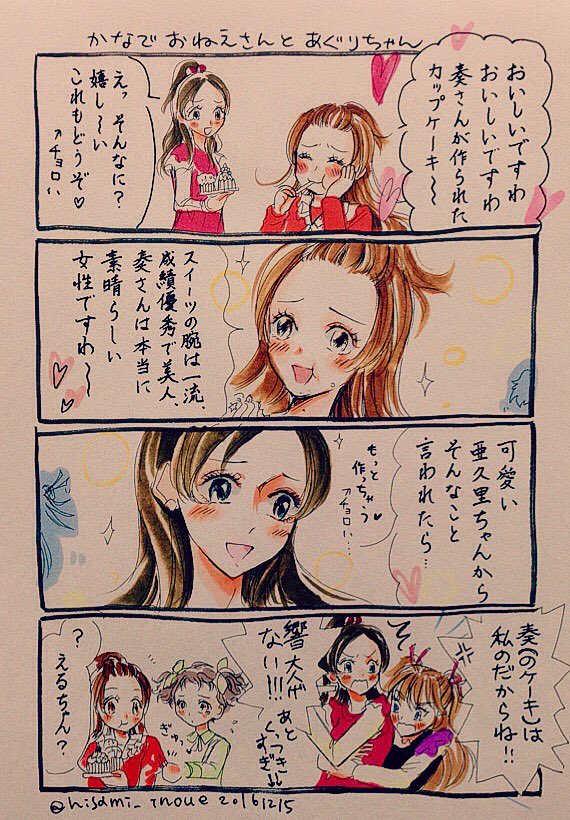 かなでおねえさんとあぐりちゃん
おいしいですわ
おいしいですわ
奏さんが作られた
カップケーキ〜
えっ そんなに?
嬉し〜い
これもどうぞ♡
↑チョロい
スイーツの腕は一流、
成績優秀で美人、
奏さんは本当に
素晴らしい
女性ですわ〜
可愛い
亜久里ちゃんから
そんなこと
言われたら…
もっと
作っちゃう♡
↑チョロい…
奏(のケーキ)は
私のだからね!!
そ
響 大人げ
ない!!!
あと
くっつき
すぎ
ぎゅっ
?
えるちゃん?
@hisami_inoue 20161215